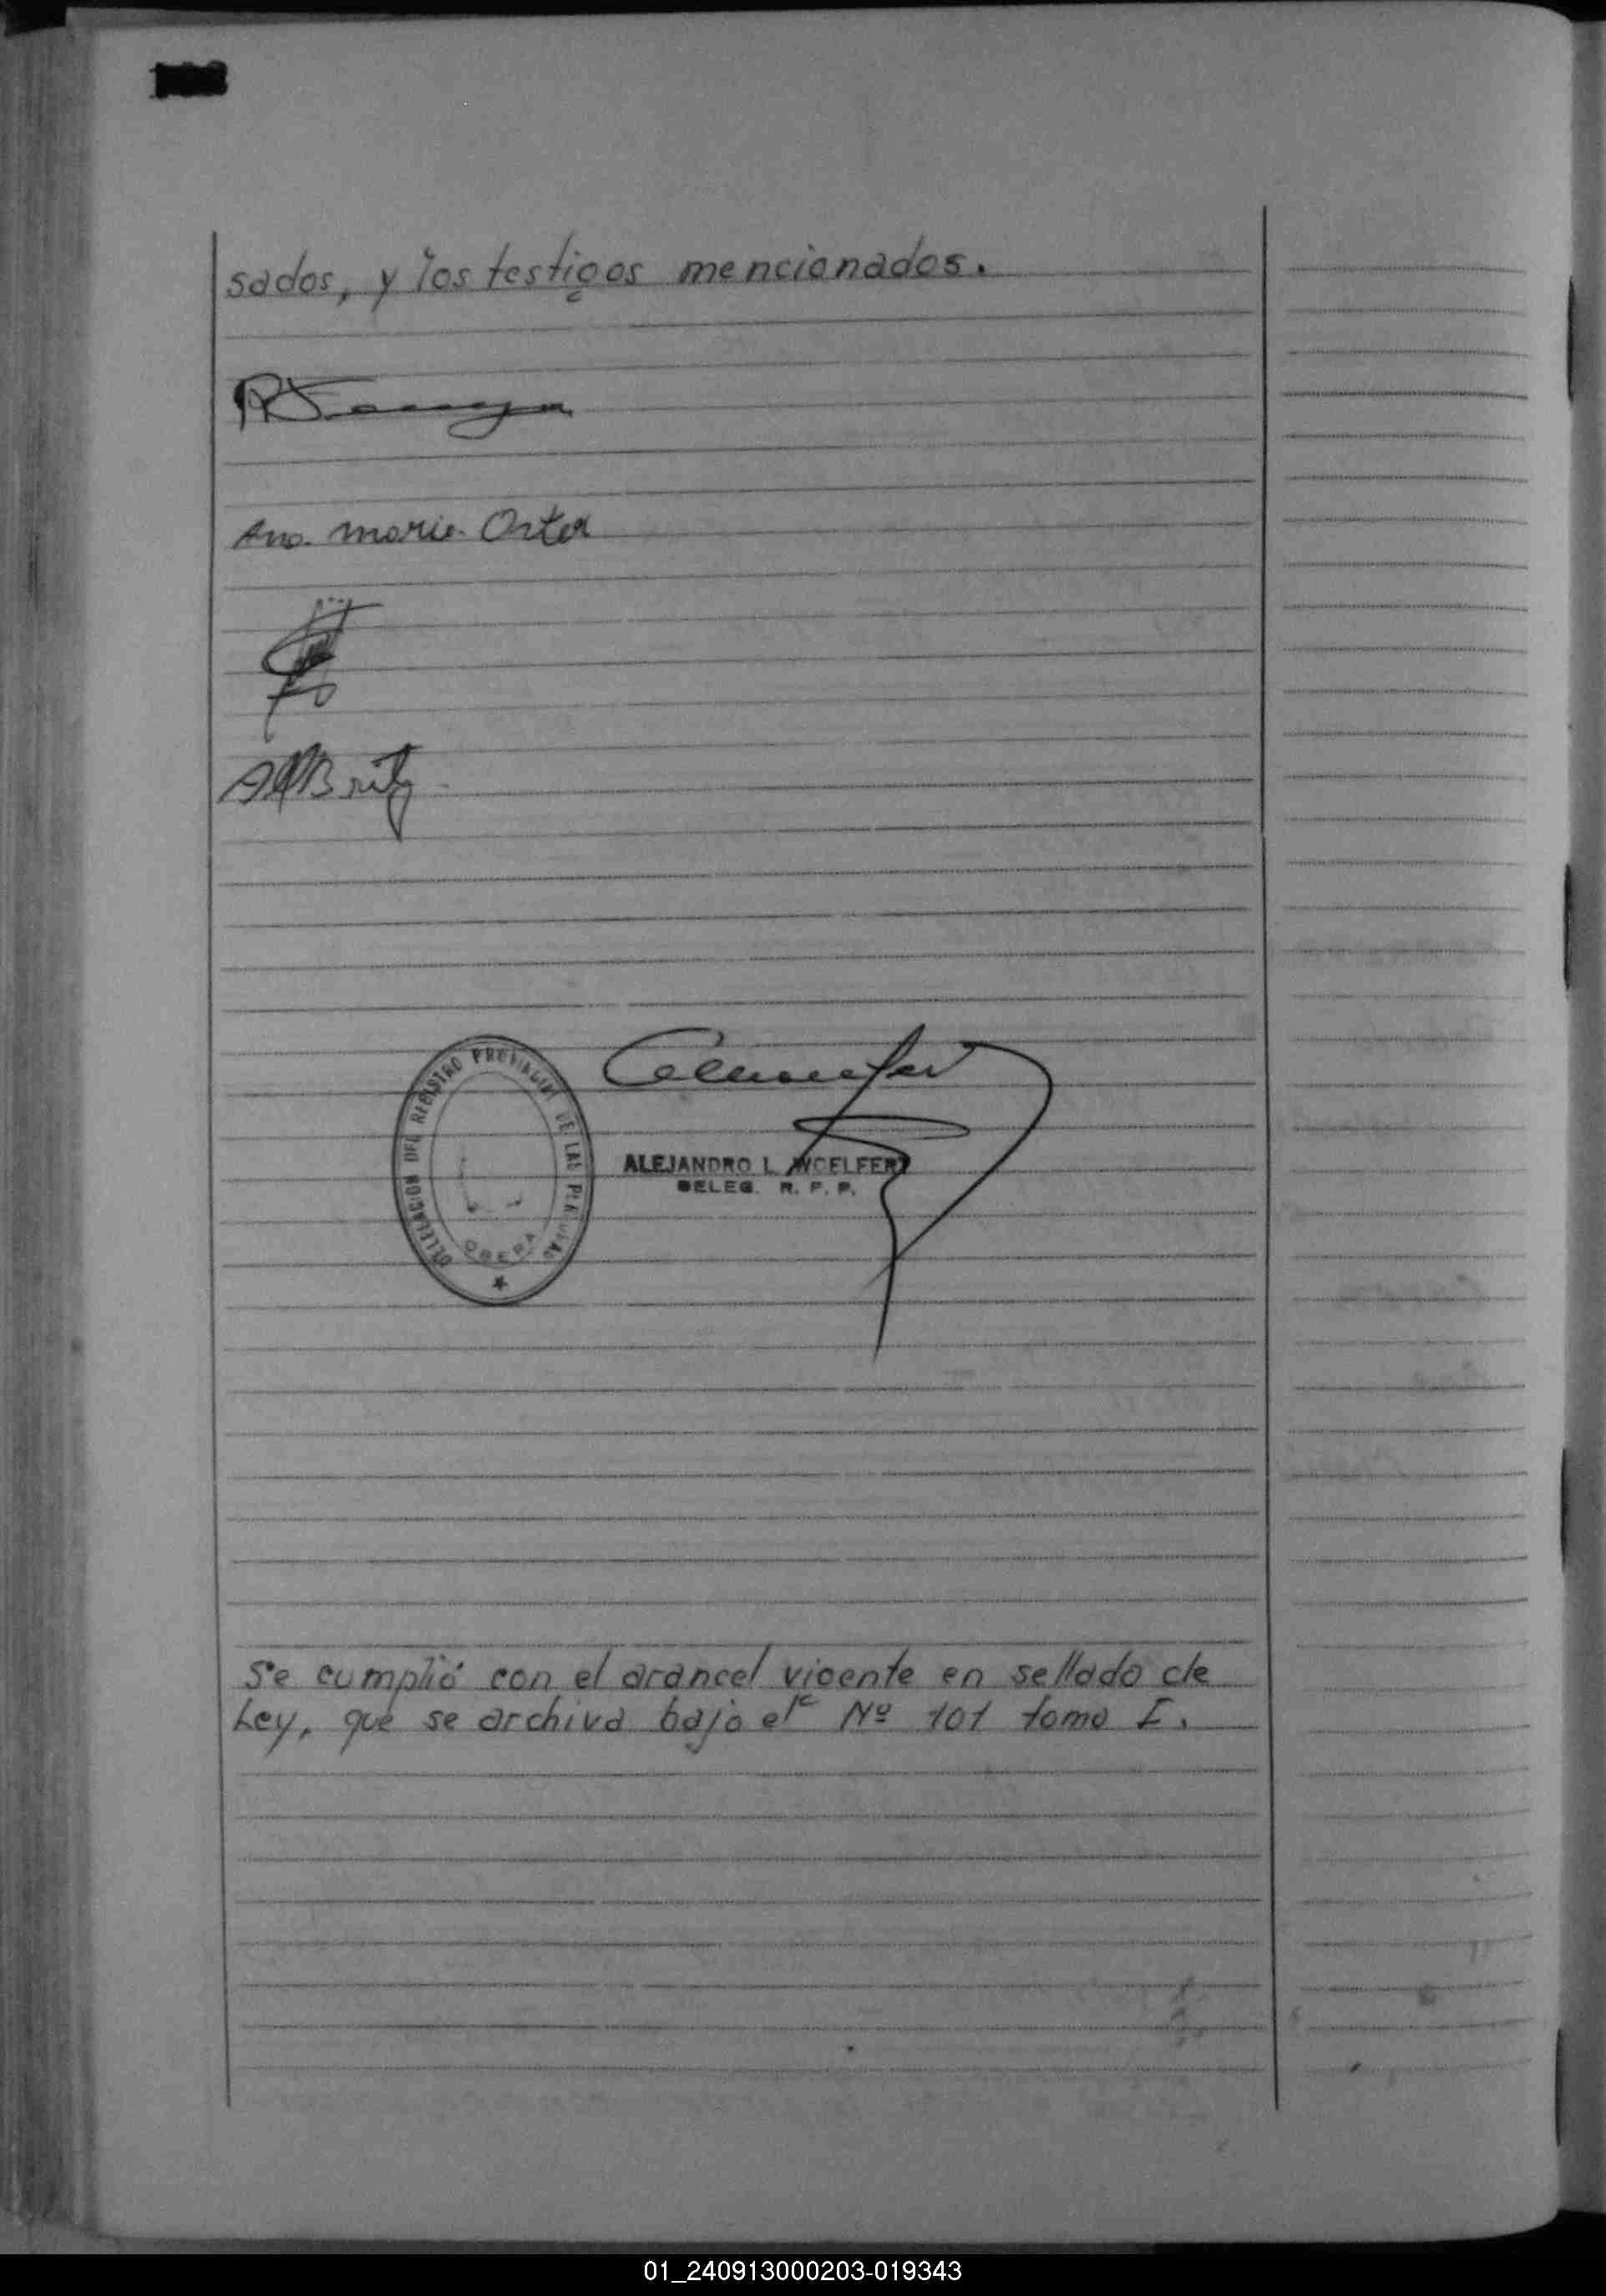 sados, y los testigos mencionados.
Ana Maria Oster
DELEGACION DEL REGISTRO PROVINCIAL DE LAS PERSONAS
OBERA
ALEJANDRO L. WOELFERT
DELEG. R. P. P.
Se cumplió con el arancel vigente en sellado de
Ley, que se archiva bajo el Nº 101 tomo I.
01_240913000203-019343